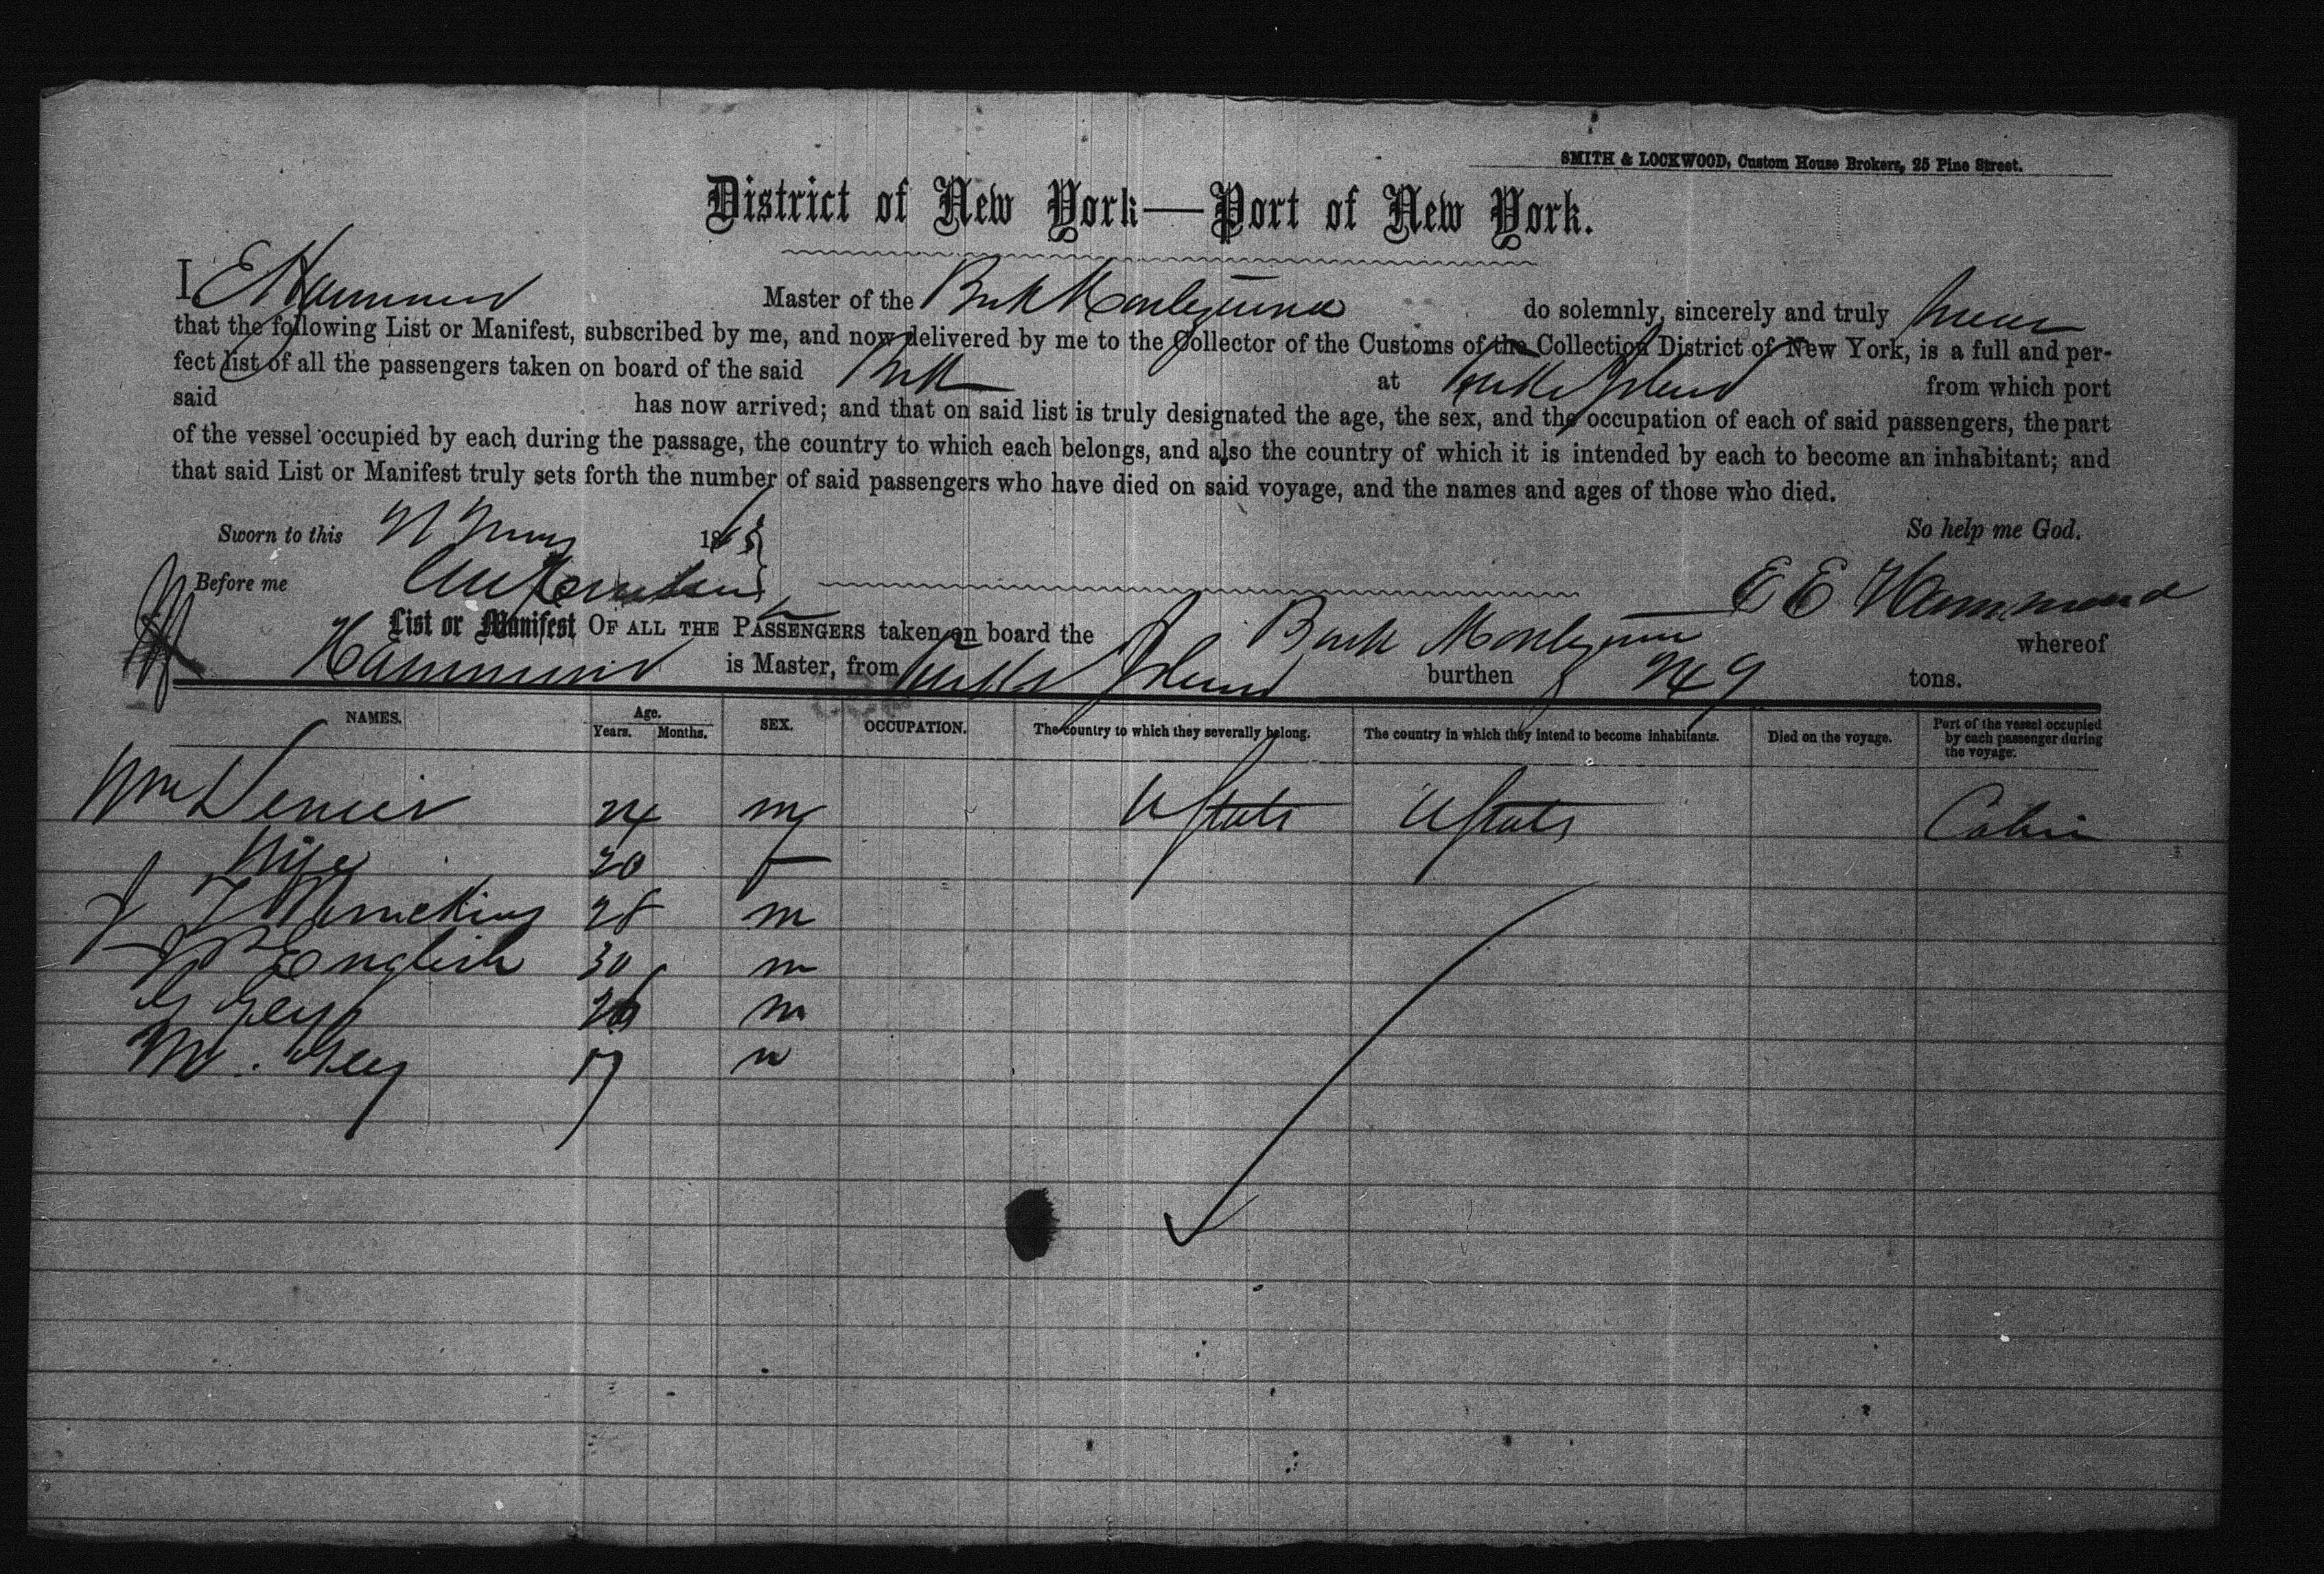 SMITH & LOCKWOOD, Custom House Brokers, 25 Pine Street.
District of New York—Port of New York.
I E Hammond Master of the Bark do solemnly, sincerely and truly swear
that the following List or Manifest, subscribed by me, and now delivered by me to the Collector of the Customs of the Collection District of New York, is a full and per-
fect list of all the passengers taken on board of the said Bark at Turks Island from which port
said has now arrived; and that on said list is truly designated the age, the sex, and the occupation of each of said passengers, the part
of the vessel occupied by each during the passage, the country to which each belongs, and also the country of which it is intended by each to become an inhabitant; and
that said List or Manifest truly sets forth the number of said passengers who have died on said voyage, and the names and ages of those who died.
Sworn to this 186 So help me God.
Before me E E Hammond
List or Manifest OF ALL THE PASSENGERS taken on board the Bark whereof
Hammond is Master, from Turks Island burthen tons.
NAMES. Age. Years. Months. SEX. OCCUPATION. The country to which they severally belong. The country in which they intend to become inhabitants. Died on the voyage. Part of the vessel occupied by each passenger during the voyage.
Wm 24 m U States U States Cabin
Wife 20 f
28 m
English 30 m
m
M. 17